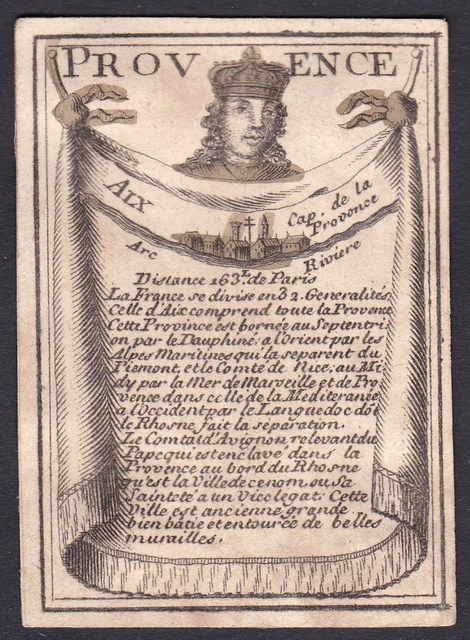 PROVENCE
AIX
Cap. de la
Provence
Arc
Riviere
Distance 163.L de Paris
La France se divise en 32. Generalités
Celle d'Aix comprend toute la Provence
Cette Province est bornée au Septentri
on par le Dauphiné, a l'Orient par les
Alpes Maritines qui la separent du
Piemont, et le Comté de Nice; au Mi
dy par la Mer de Marseille et de Pro
vence dans celle de la Mediteranée
a l'Occident par le Languedoc dōt
le Rhosne fait la separation.
Le Comtat d'Avignon relevant du
Pape qui est enclavé dans la
Provence au bord du Rhosne
qu'est la Ville de ce nom ou Sa
Sainteté a un Vice legat; Cette
Ville est ancienne grande
bien bâtie et entourée de belles
murailles.